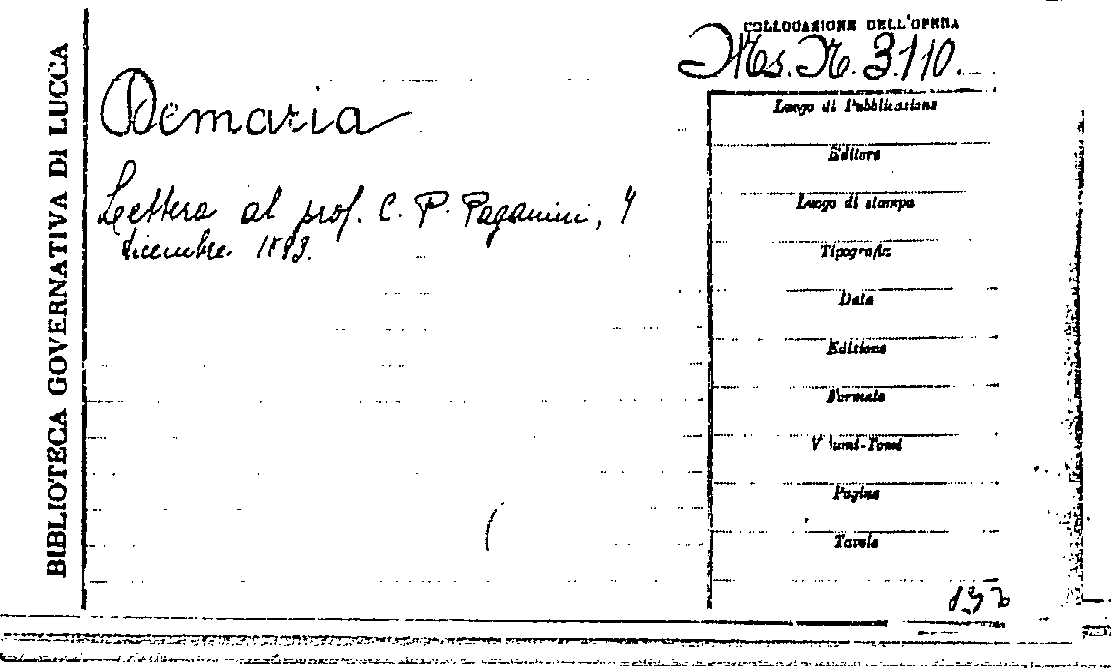 BIBLIOTECA GOVERNATIVA DI LUCCA
COLLOCAZIONE DELL'OPERA
Ms. N. 3110.
Demaria
Lettera al prof. C. P. Paganini, 4
dicembre 1893.
Luogo di Pubblicazione
Editore
Luogo di stampa
Tipografia
Data
Edizione
Formato
Volumi-Tomi
Pagine
Tavole